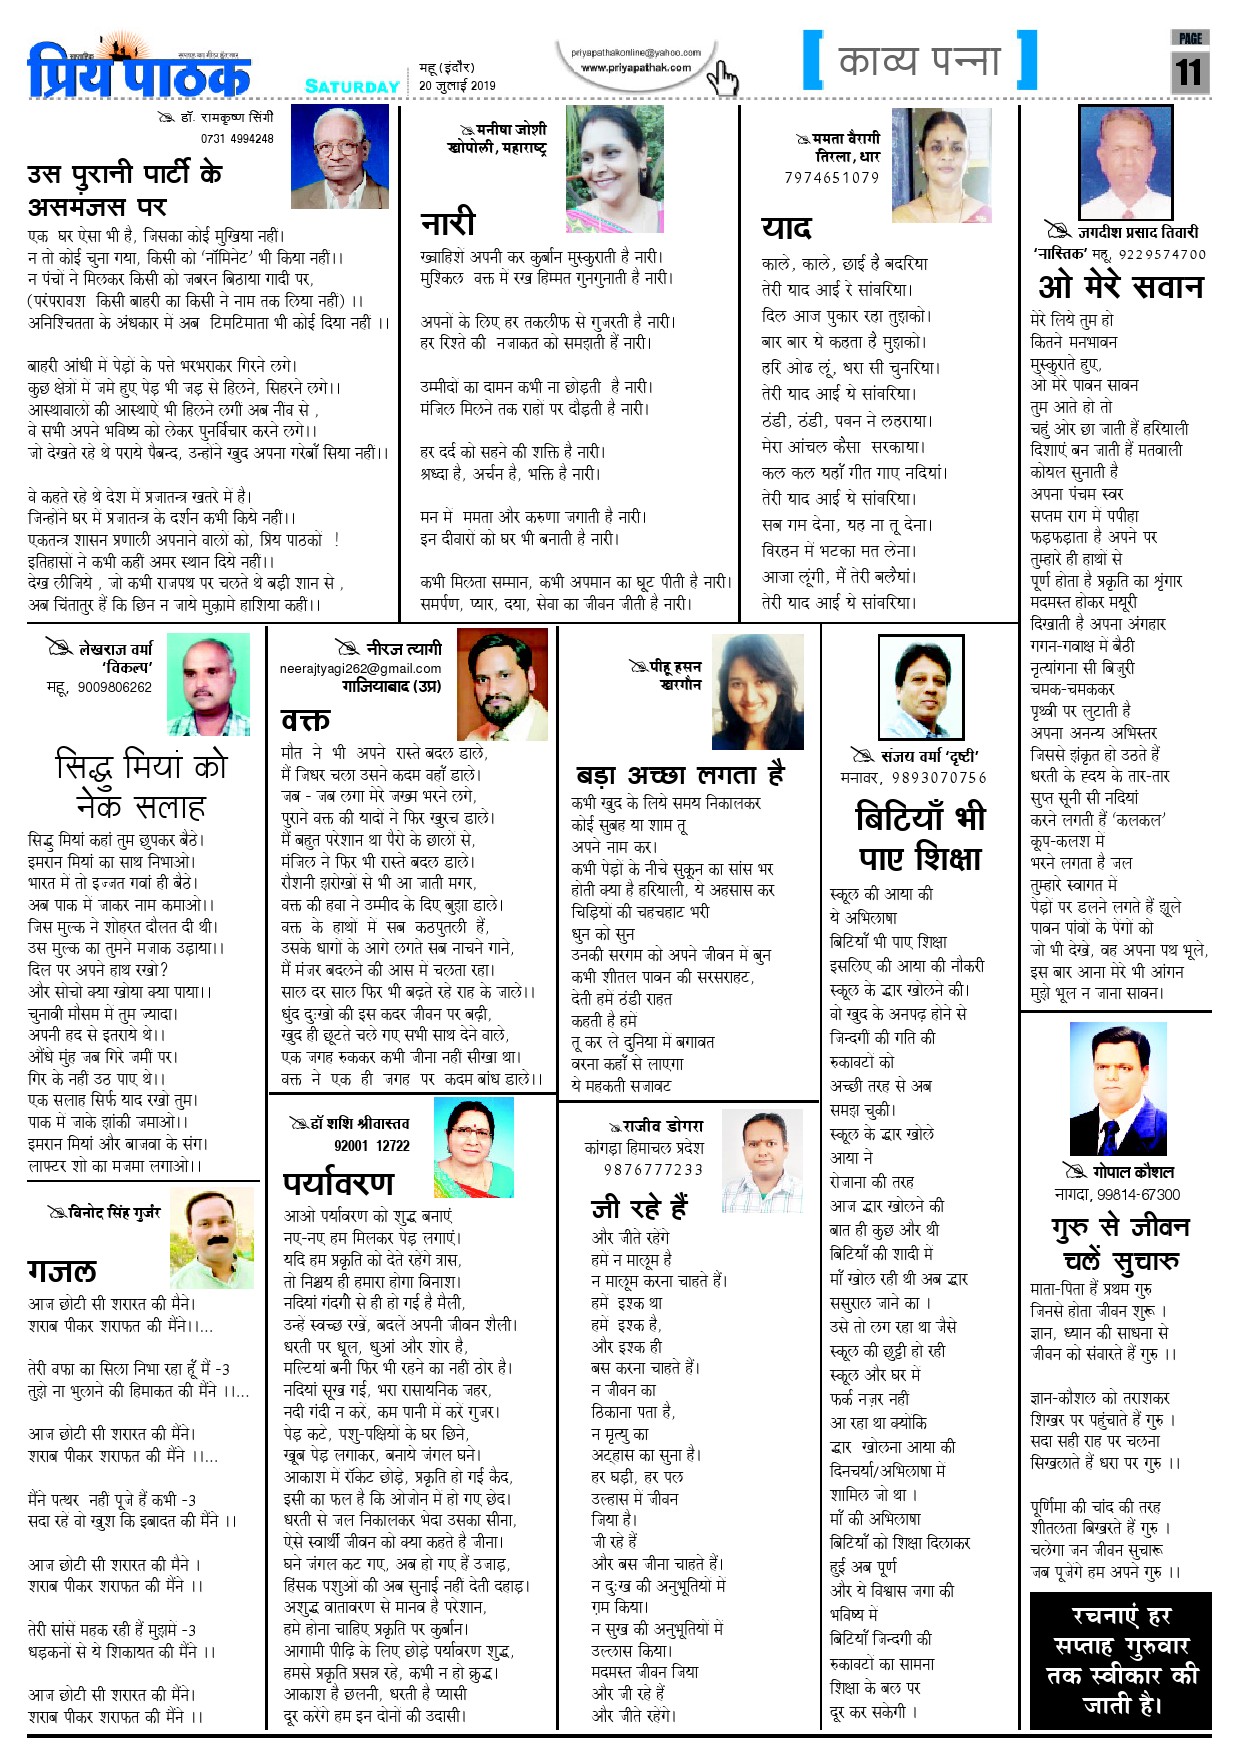 साप्ताहिक
प्रिय पाठक
SATURDAY
महू (इंदौर)
20 जुलाई 2019
priyapathakonline@yahoo.com
www.priyapathak.com
[ काव्य पन्ना ]
PAGE
11
डॉ. रामकृष्ण सिंगी
0731 4994248
उस पुरानी पार्टी के
असमंजस पर
एक घर ऐसा भी है, जिसका कोई मुखिया नहीं।
न तो कोई चुना गया, किसी को ‘नॉमिनेट’ भी किया नहीं।।
न पंचों ने मिलकर किसी को जबरन बिठाया गादी पर,
(परंपरावश किसी बाहरी का किसी ने नाम तक लिया नहीं) ।।
अनिश्चितता के अंधकार में अब टिमटिमाता भी कोई दिया नहीं ।।
बाहरी आंधी में पेड़ों के पत्ते भरभराकर गिरने लगे।
कुछ क्षेत्रों में जमे हुए पेड़ भी जड़ से हिलने, सिहरने लगे।।
आस्थावालों की आस्थाऐं भी हिलने लगी अब नींव से ,
वे सभी अपने भविष्य को लेकर पुनर्विचार करने लगे।।
जो देखते रहे थे पराये पैबन्द, उन्होंने खुद अपना गरेबाँ सिया नहीं।।
वे कहते रहे थे देश में प्रजातन्त्र खतरे में है।
जिन्होंने घर में प्रजातन्त्र के दर्शन कभी किये नहीं।।
एकतन्त्र शासन प्रणाली अपनाने वालों को, प्रिय पाठकों !
इतिहासों ने कभी कहीं अमर स्थान दिये नहीं।।
देख लीजिये , जो कभी राजपथ पर चलते थे बड़ी शान से ,
अब चिंतातुर हैं कि छिन न जाये मुक़ामे हाशिया कहीं।।
मनीषा जोशी
खोपोली, महाराष्ट्र
नारी
ख्वाहिशें अपनी कर कुर्बान मुस्कुराती है नारी।
मुश्किल वक्त में रख हिम्मत गुनगुनाती है नारी।
अपनों के लिए हर तकलीफ से गुजरती है नारी।
हर रिश्ते की नजाकत को समझती हैं नारी।
उम्मीदों का दामन कभी ना छोड़ती है नारी।
मंजिल मिलने तक राहों पर दौड़ती है नारी।
हर दर्द को सहने की शक्ति है नारी।
श्रध्दा है, अर्चन है, भक्ति है नारी।
मन में ममता और करुणा जगाती है नारी।
इन दीवारों को घर भी बनाती है नारी।
कभी मिलता सम्मान, कभी अपमान का घूट पीती है नारी।
समर्पण, प्यार, दया, सेवा का जीवन जीती है नारी।
ममता वैरागी
तिरला, धार
7974651079
याद
काले, काले, छाई है बदरिया
तेरी याद आई रे सांवरिया।
दिल आज पुकार रहा तुझको।
बार बार ये कहता है मुझको।
हरि ओढ लूं, धरा सी चुनरिया।
तेरी याद आई ये सांवरिया।
ठंडी, ठंडी, पवन ने लहराया।
मेरा आंचल कैसा सरकाया।
कल कल यहाँ गीत गाए नदियां।
तेरी याद आई ये सांवरिया।
सब गम देना, यह ना तू देना।
विरहन में भटका मत लेना।
आजा लूंगी, मैं तेरी बलैयां।
तेरी याद आई ये सांवरिया।
जगदीश प्रसाद तिवारी
‘नास्तिक’ महू, 9229574700
ओ मेरे सवान
मेरे लिये तुम हो
कितने मनभावन
मुस्कुराते हुए,
ओ मेरे पावन सावन
तुम आते हो तो
चहुं ओर छा जाती हैं हरियाली
दिशाएं बन जाती हैं मतवाली
कोयल सुनाती है
अपना पंचम स्वर
सप्तम राग में पपीहा
फड़फड़ाता है अपने पर
तुम्हारे ही हाथों से
पूर्ण होता है प्रकृति का श्रृंगार
मदमस्त होकर मयूरी
दिखाती है अपना अंगहार
गगन-गवाक्ष में बैठी
नृत्यांगना सी बिजुरी
चमक-चमककर
पृथ्वी पर लुटाती है
अपना अनन्य अभिस्तर
जिससे झंकृत हो उठते हैं
धरती के ह्दय के तार-तार
सुप्त सूनी सी नदियां
करने लगती हैं ‘कलकल’
कूप-कलश में
भरने लगता है जल
तुम्हारे स्वागत में
पेड़ों पर डलने लगते हैं झूले
पावन पांवों के पेंगों को
जो भी देखे, वह अपना पथ भूले,
इस बार आना मेरे भी आंगन
मुझे भूल न जाना सावन।
लेखराज वर्मा
‘विकल्प’
महू, 9009806262
सिद्धु मियां को
नेक सलाह
सिद्धु मियां कहां तुम छुपकर बैठे।
इमरान मियां का साथ निभाओ।
भारत में तो इज्जत गवां ही बैठे।
अब पाक में जाकर नाम कमाओ।।
जिस मुल्क ने शोहरत दौलत दी थी।
उस मुल्क का तुमने मजाक उड़ाया।।
दिल पर अपने हाथ रखो?
और सोचो क्या खोया क्या पाया।।
चुनावी मौसम में तुम ज्यादा।
अपनी हद से इतराये थे।।
औंधे मुंह जब गिरे जमीं पर।
गिर के नहीं उठ पाए थे।।
एक सलाह सिर्फ याद रखो तुम।
पाक में जाके झांकी जमाओ।।
इमरान मियां और बाजवा के संग।
लाफ्टर शो का मजमा लगाओ।।
नीरज त्यागी
neerajtyagi262@gmail.com
गाजियाबाद (उप्र)
वक्त
मौत ने भी अपने रास्ते बदल डाले,
मैं जिधर चला उसने कदम वहाँ डाले।
जब - जब लगा मेरे जख्म भरने लगे,
पुराने वक्त की यादों ने फिर खुरच डाले।
मैं बहुत परेशान था पैरो के छालों से,
मंजिल ने फिर भी रास्ते बदल डाले।
रौशनी झरोखों से भी आ जाती मगर,
वक्त की हवा ने उम्मीद के दिए बुझा डाले।
वक्त के हाथों में सब कठपुतली हैं,
उसके धागों के आगे लगते सब नाचने गाने,
मैं मंजर बदलने की आस में चलता रहा।
साल दर साल फिर भी बढ़ते रहे राह के जाले।।
धुंद दुःखो की इस कदर जीवन पर बढ़ी,
खुद ही छूटते चले गए सभी साथ देने वाले,
एक जगह रुककर कभी जीना नहीं सीखा था।
वक्त ने एक ही जगह पर कदम बांध डाले।।
पीहू हसन
खरगौन
बड़ा अच्छा लगता है
कभी खुद के लिये समय निकालकर
कोई सुबह या शाम तू
अपने नाम कर।
कभी पेड़ों के नीचे सुकून का सांस भर
होती क्या है हरियाली, ये अहसास कर
चिड़ियों की चहचहाट भरी
धुन को सुन
उनकी सरगम को अपने जीवन में बुन
कभी शीतल पावन की सरसराहट,
देती हमें ठंडी राहत
कहती है हमें
तू कर ले दुनिया में बगावत
वरना कहाँ से लाएगा
ये महकती सजावट
संजय वर्मा ‘दृष्टी’
मनावर, 9893070756
बिटियाँ भी
पाए शिक्षा
स्कूल की आया की
ये अभिलाषा
बिटियाँ भी पाए शिक्षा
इसलिए की आया की नौकरी
स्कूल के द्धार खोलने की।
वो खुद के अनपढ़ होने से
जिन्दगीं की गति की
रुकावटों को
अच्छी तरह से अब
समझ चुकी।
स्कूल के द्धार खोले
आया ने
रोजाना की तरह
आज द्धार खोलने की
बात ही कुछ और थी
बिटियाँ की शादी में
माँ खोल रही थी अब द्धार
ससुराल जाने का ।
उसे तो लग रहा था जैसे
स्कूल की छुट्टी हो रही
स्कूल और घर में
फर्क नज़र नही
आ रहा था क्योंकि
द्धार खोलना आया की
दिनचर्या/अभिलाषा में
शामिल जो था ।
माँ की अभिलाषा
बिटियाँ को शिक्षा दिलाकर
हुई अब पूर्ण
और ये विश्वास जगा की
भविष्य में
बिटियाँ जिन्दगी की
रुकावटों का सामना
शिक्षा के बल पर
दूर कर सकेगी ।
विनोद सिंह गुर्जर
गजल
आज छोटी सी शरारत की मैंने।
शराब पीकर शराफत की मैंने।।...
तेरी वफा का सिला निभा रहा हूँ मैं -3
तुझे ना भुलाने की हिमाकत की मैंने ।।...
आज छोटी सी शरारत की मैंने।
शराब पीकर शराफत की मैंने ।।...
मैंने पत्थर नहीं पूजे हैं कभी -3
सदा रहें वो खुश कि इबादत की मैंने ।।
आज छोटी सी शरारत की मैने ।
शराब पीकर शराफत की मैंने ।।
तेरी सांसें महक रही हैं मुझमें -3
धड़कनों से ये शिकायत की मैंने ।।
आज छोटी सी शरारत की मैंने।
शराब पीकर शराफत की मैंने ।।
डॉ शशि श्रीवास्तव
92001 12722
पर्यावरण
आओ पर्यावरण को शुद्ध बनाएं
नए-नए हम मिलकर पेड़ लगाएं।
यदि हम प्रकृति को देते रहेंगे त्रास,
तो निश्चय ही हमारा होगा विनाश।
नदियां गंदगी से ही हो गई है मैली,
उन्हें स्वच्छ रखें, बदलें अपनी जीवन शैली।
धरती पर धूल, धुआं और शोर है,
मल्टियां बनी फिर भी रहने का नही ठोर है।
नदियां सूख गई, भरा रासायनिक जहर,
नदी गंदी न करें, कम पानी में करें गुजर।
पेड़ कटे, पशु-पक्षियों के घर छिने,
खूब पेड़ लगाकर, बनाये जंगल घने।
आकाश में रॉकेट छोड़े, प्रकृति हो गई कैद,
इसी का फल है कि ओजोन में हो गए छेद।
धरती से जल निकालकर भेदा उसका सीना,
ऐसे स्वार्थी जीवन को क्या कहते है जीना।
घने जंगल कट गए, अब हो गए हैं उजाड़,
हिंसक पशुओं की अब सुनाई नही देती दहाड़।
अशुद्ध वातावरण से मानव है परेशान,
हमे होना चाहिए प्रकृति पर कुर्बान।
आगामी पीढ़ि के लिए छोड़े पर्यावरण शुद्ध,
हमसे प्रकृति प्रसन्न रहे, कभी न हो क्रुद्ध।
आकाश है छलनी, धरती है प्यासी
दूर करेंगे हम इन दोनों की उदासी।
राजीव डोगरा
कांगड़ा हिमाचल प्रदेश
9876777233
जी रहे हैं
और जीते रहेंगे
हमें न मालूम है
न मालूम करना चाहते हैं।
हमें इश्क था
हमें इश्क है,
और इश्क ही
बस करना चाहते हैं।
न जीवन का
ठिकाना पता है,
न मृत्यु का
अट्हास का सुना है।
हर घड़ी, हर पल
उल्हास में जीवन
जिया है।
जी रहे हैं
और बस जीना चाहते हैं।
न दुःख की अनुभूतियों में
ग़म किया।
न सुख की अनुभूतियों में
उल्लास किया।
मदमस्त जीवन जिया
और जी रहे हैं
और जीते रहेंगे।
गोपाल कौशल
नागदा, 99814-67300
गुरु से जीवन
चलें सुचारु
माता-पिता हैं प्रथम गुरु
जिनसे होता जीवन शुरू ।
ज्ञान, ध्यान की साधना से
जीवन को संवारते हैं गुरु ।।
ज्ञान-कौशल को तराशकर
शिखर पर पहुंचाते हैं गुरु ।
सदा सही राह पर चलना
सिखलाते हैं धरा पर गुरु ।।
पूर्णिमा की चांद की तरह
शीतलता बिखरते हैं गुरु ।
चलेगा जन जीवन सुचारू
जब पूजेंगे हम अपने गुरु ।।
रचनाएं हर
सप्ताह गुरुवार
तक स्वीकार की
जाती है।